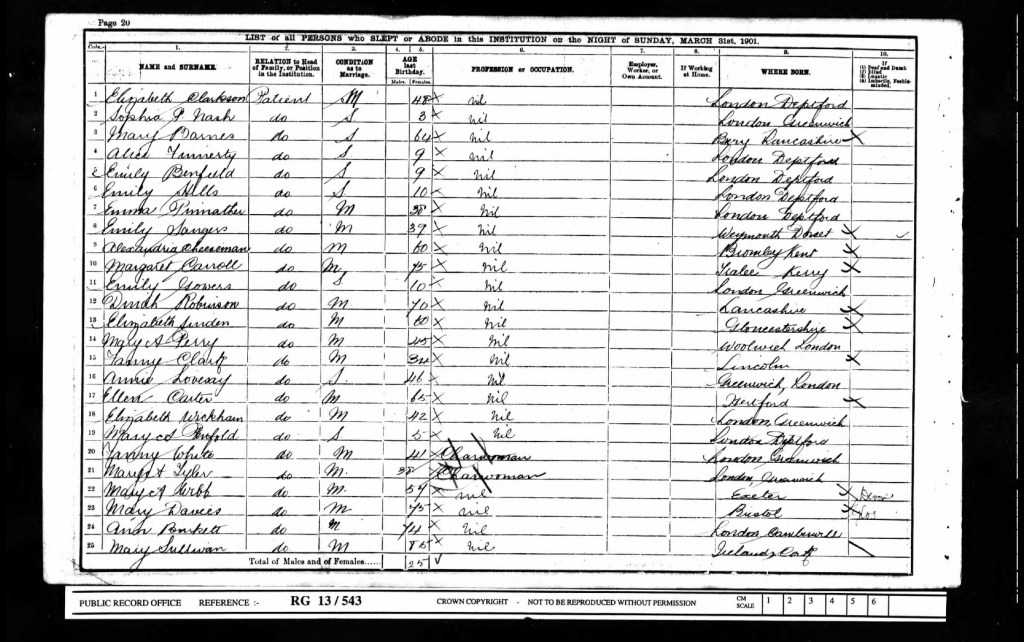 Page 20
LIST of all PERSONS who SLEPT or ABODE in this INSTITUTION on the NIGHT of SUNDAY, MARCH 31st, 1901.
1. 2. 3. 4. 5. 6. 7. 8. 9. 10.
NAME and SURNAME. RELATION to Head of Family, or Position in the Institution. CONDITION as to Marriage. AGE last Birthday. Males. Females. PROFESSION or OCCUPATION. Employer, Worker, or Own Account. If Working at Home. WHERE BORN. If (1) Deaf and Dumb (2) Blind (3) Lunatic (4) Imbecile, Feeble-minded.
1 Elizabeth Clarkson Patient M 48 nil London Deptford
2 Sophia P. Nash do S 3 Nil London Greenwich
3 Mary Barnes do S 64 Nil Bury Lancashire
4 Alice Finnerty do S 9 nil London Deptford
5 Emily Benfield do S 9 Nil London Deptford
6 Emily Sells do S 10 Nil London Deptford
7 Emma Pinnather do M 38 Nil London Deptford
8 Emily Sangers do M 39 Nil Weymouth Dorset
9 Alexandria Cheeseman do M 60 Nil Bromley Kent
10 Margaret Carroll do M 75 Nil Tralee Kerry
11 Emily Gowers do S 10 Nil London Greenwich
12 Dinah Robinson do M. 70 Nil Lancashire
13 Elizabeth Linden do M 60 Nil Gloucestershire
14 Mary A Perry do M 45 Nil Woolwich London
15 Fanny Clark do M 34 Nil Lincoln
16 Annie Loveday do S. 46 Nil Greenwich, London
17 Ellen Carter do M 65 Nil Hertford
18 Elizabeth Wickham do M 42 Nil London Greenwich
19 Mary A Penfold do S 5 Nil London Deptford
20 Fanny White do M 41 Charwoman London Greenwich
21 Margt Tyler do M. 38 Charwoman London, Greenwich
22 Mary A Webb do M. 59 nil Exeter Devon
23 Mary Davies do M 75 nil Bristol
24 Ann Burkett do M 74 Nil London Camberwell
25 Mary Sullivan do M 85 Nil Ireland, Cork
Total of Males and of Females...... 25
PUBLIC RECORD OFFICE REFERENCE :- RG 13/543 CROWN COPYRIGHT - NOT TO BE REPRODUCED WITHOUT PERMISSION CM SCALE 1 2 3 4 5 6